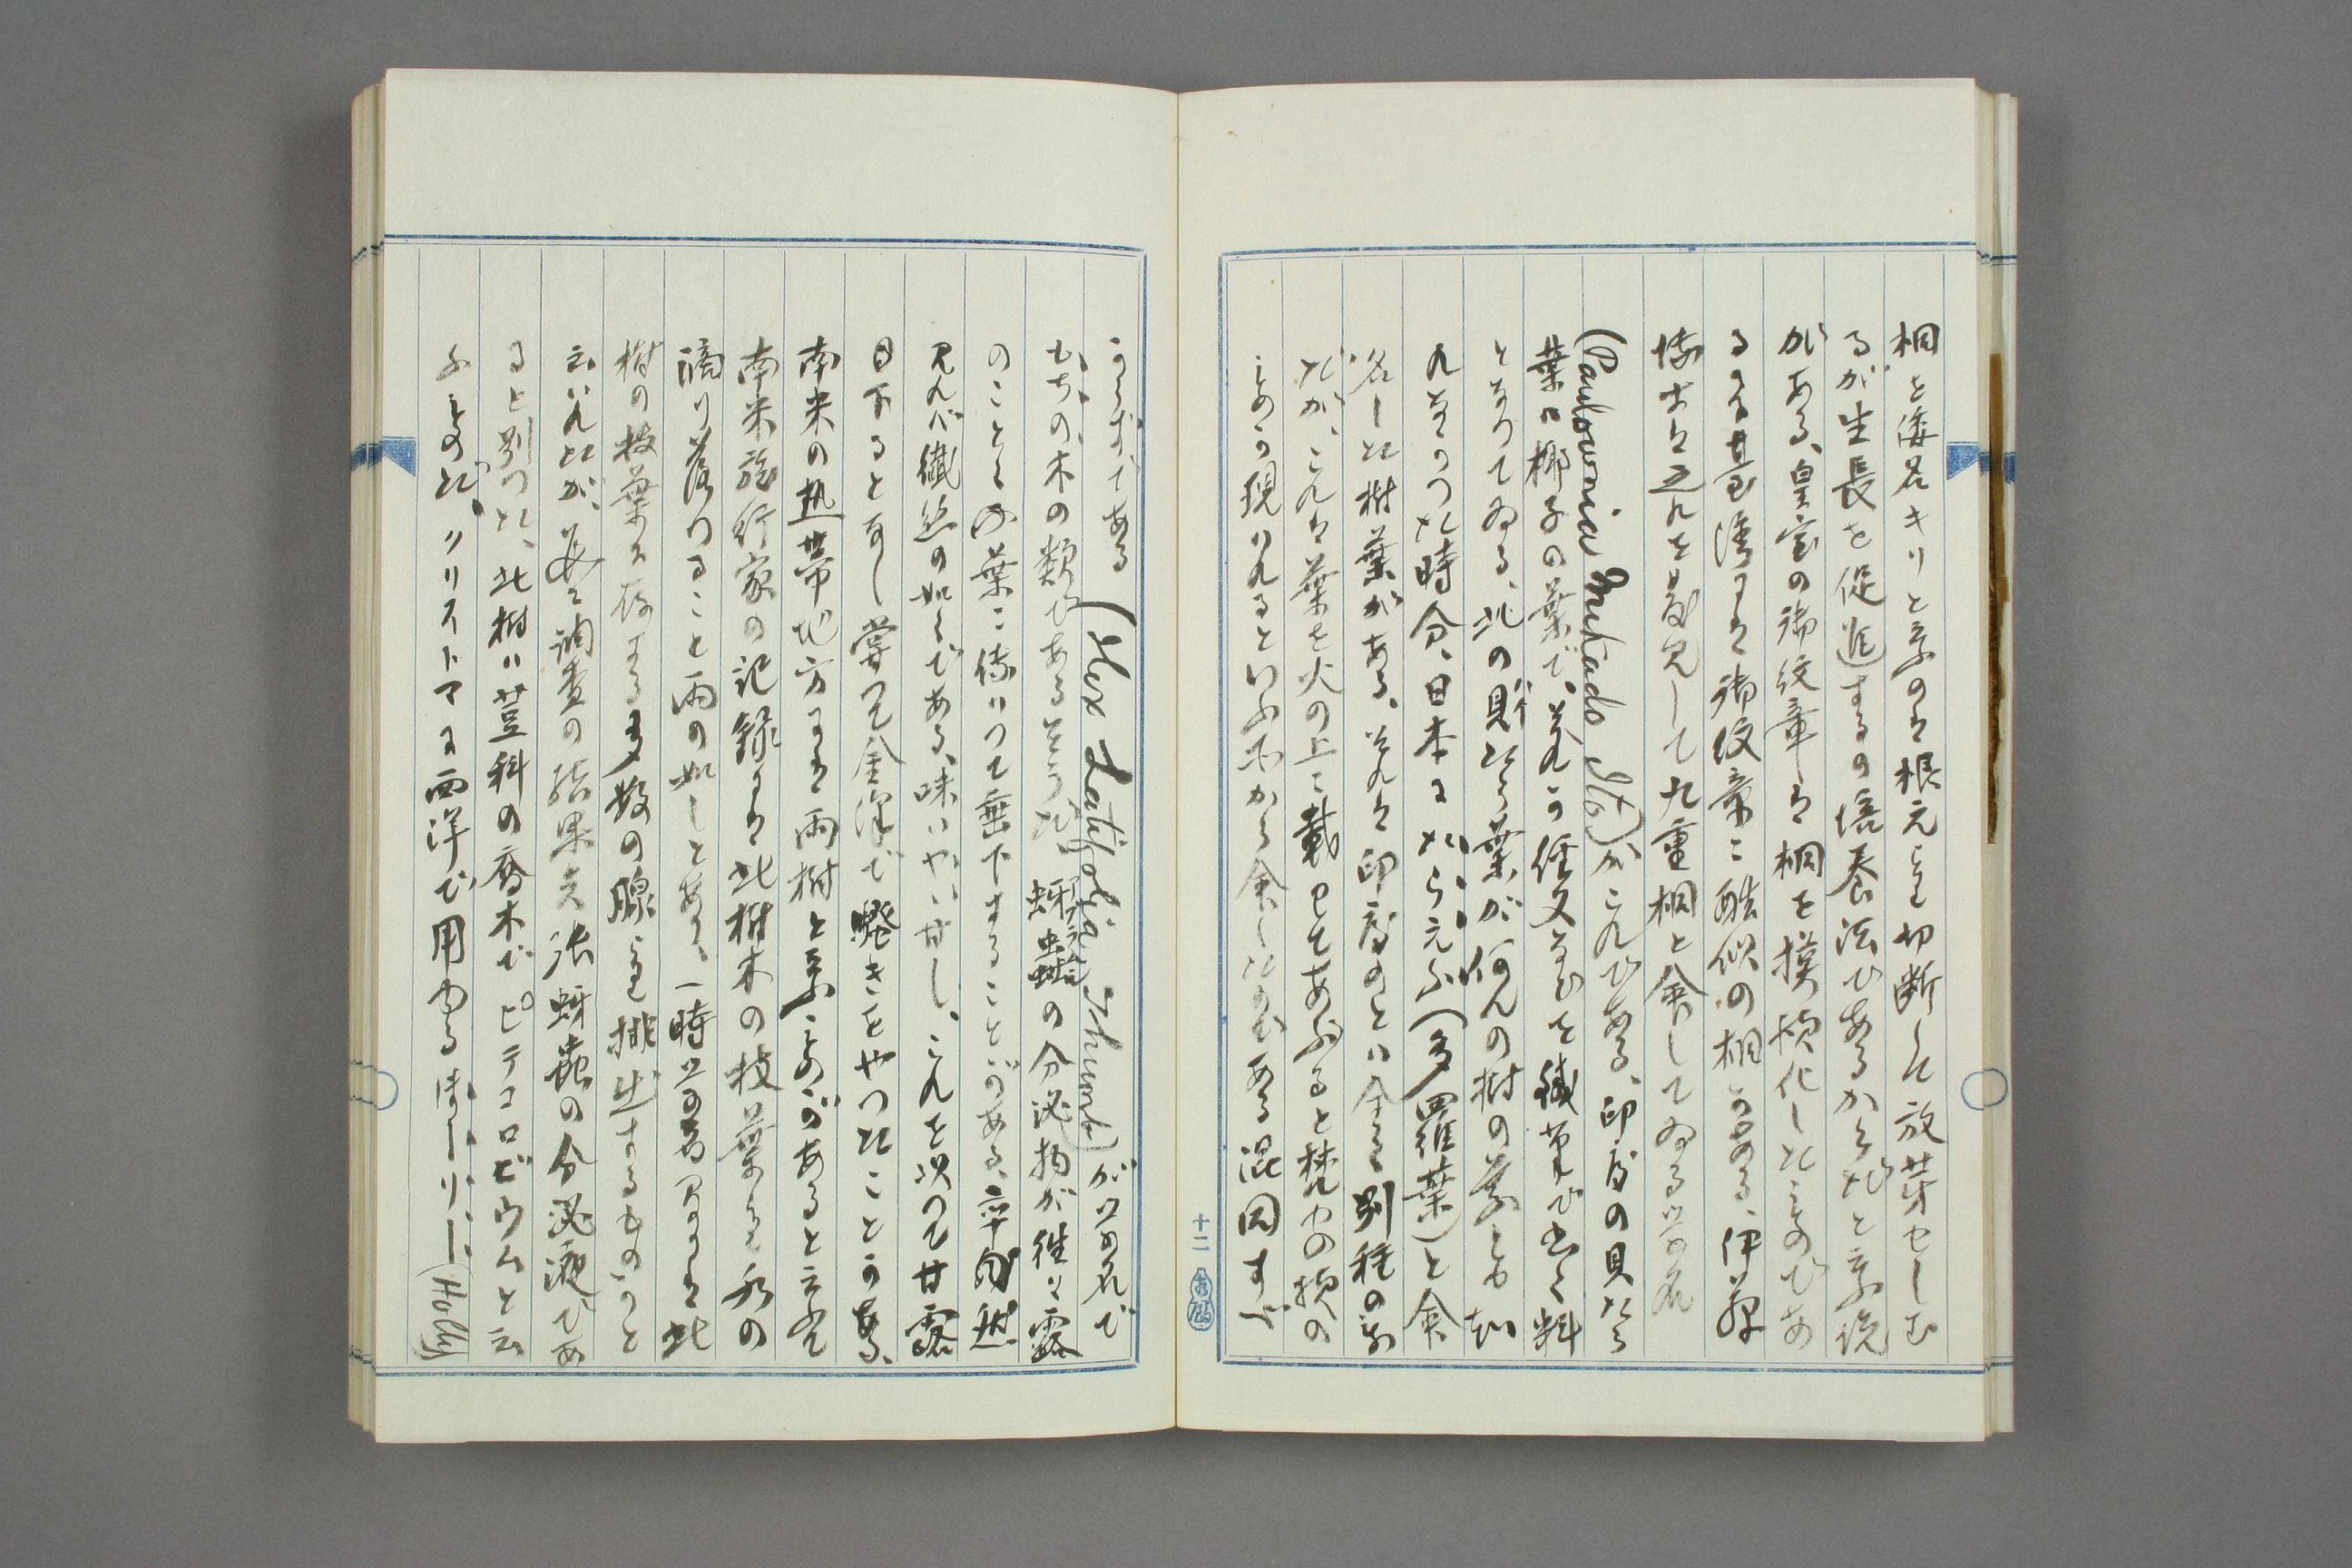 桐を倭名キリと云ふのは根元を切断して放芽せしむ
るが生長を促進するの培養法であるからだと云ふ説
がある、皇室の御紋章は桐を模様化したものであ
るが台湾には御紋章に酷似の桐がある、伊藤
博士は之れを発見して九重桐と命じてゐる学名
(Paulownia Mikado Ito)がこれである、印度の貝たら
葉は椰子の葉で、それが経文などを鉄筆で書く料
となつてゐる、此の貝たら葉が何んの樹の葉とも知
れなかつた時分、日本にたらえふ(多羅葉)と命
名した樹葉がある、それは印度のとは全く別種の
だが、これは葉を火の上に載せてあぶると梵字の様の
ものが現はれるといふ所から命じたのである混同すべ
十二
からずである
(Ilex Latifolia, Thumb)が学名で
もちの木の類である
蚜虫
の分泌物が往々露
のごとくの葉に伝はつて垂下することがある、
見れば繊糸の如くである、味はやゝ甘し、これを以つて甘露
日下ると有し嘗て金澤で騒きをやつたことがある、
南米の熱帯地方には雨樹と云ふものがあると云ふ
南米旅行家の記録には此樹木の枝葉より水の
滴り落つること雨の如しとある、一時学者間には此
樹の枝葉に存する多数の腺を排出するものかと
云はれたが、其後調査の結果矢張蚜蟲の分泌液であ
ると判つた、此樹は荳科の喬木でピテコロビウムと云
ふものだ、クリストマスに西洋で用ゆるほーりー(Holly